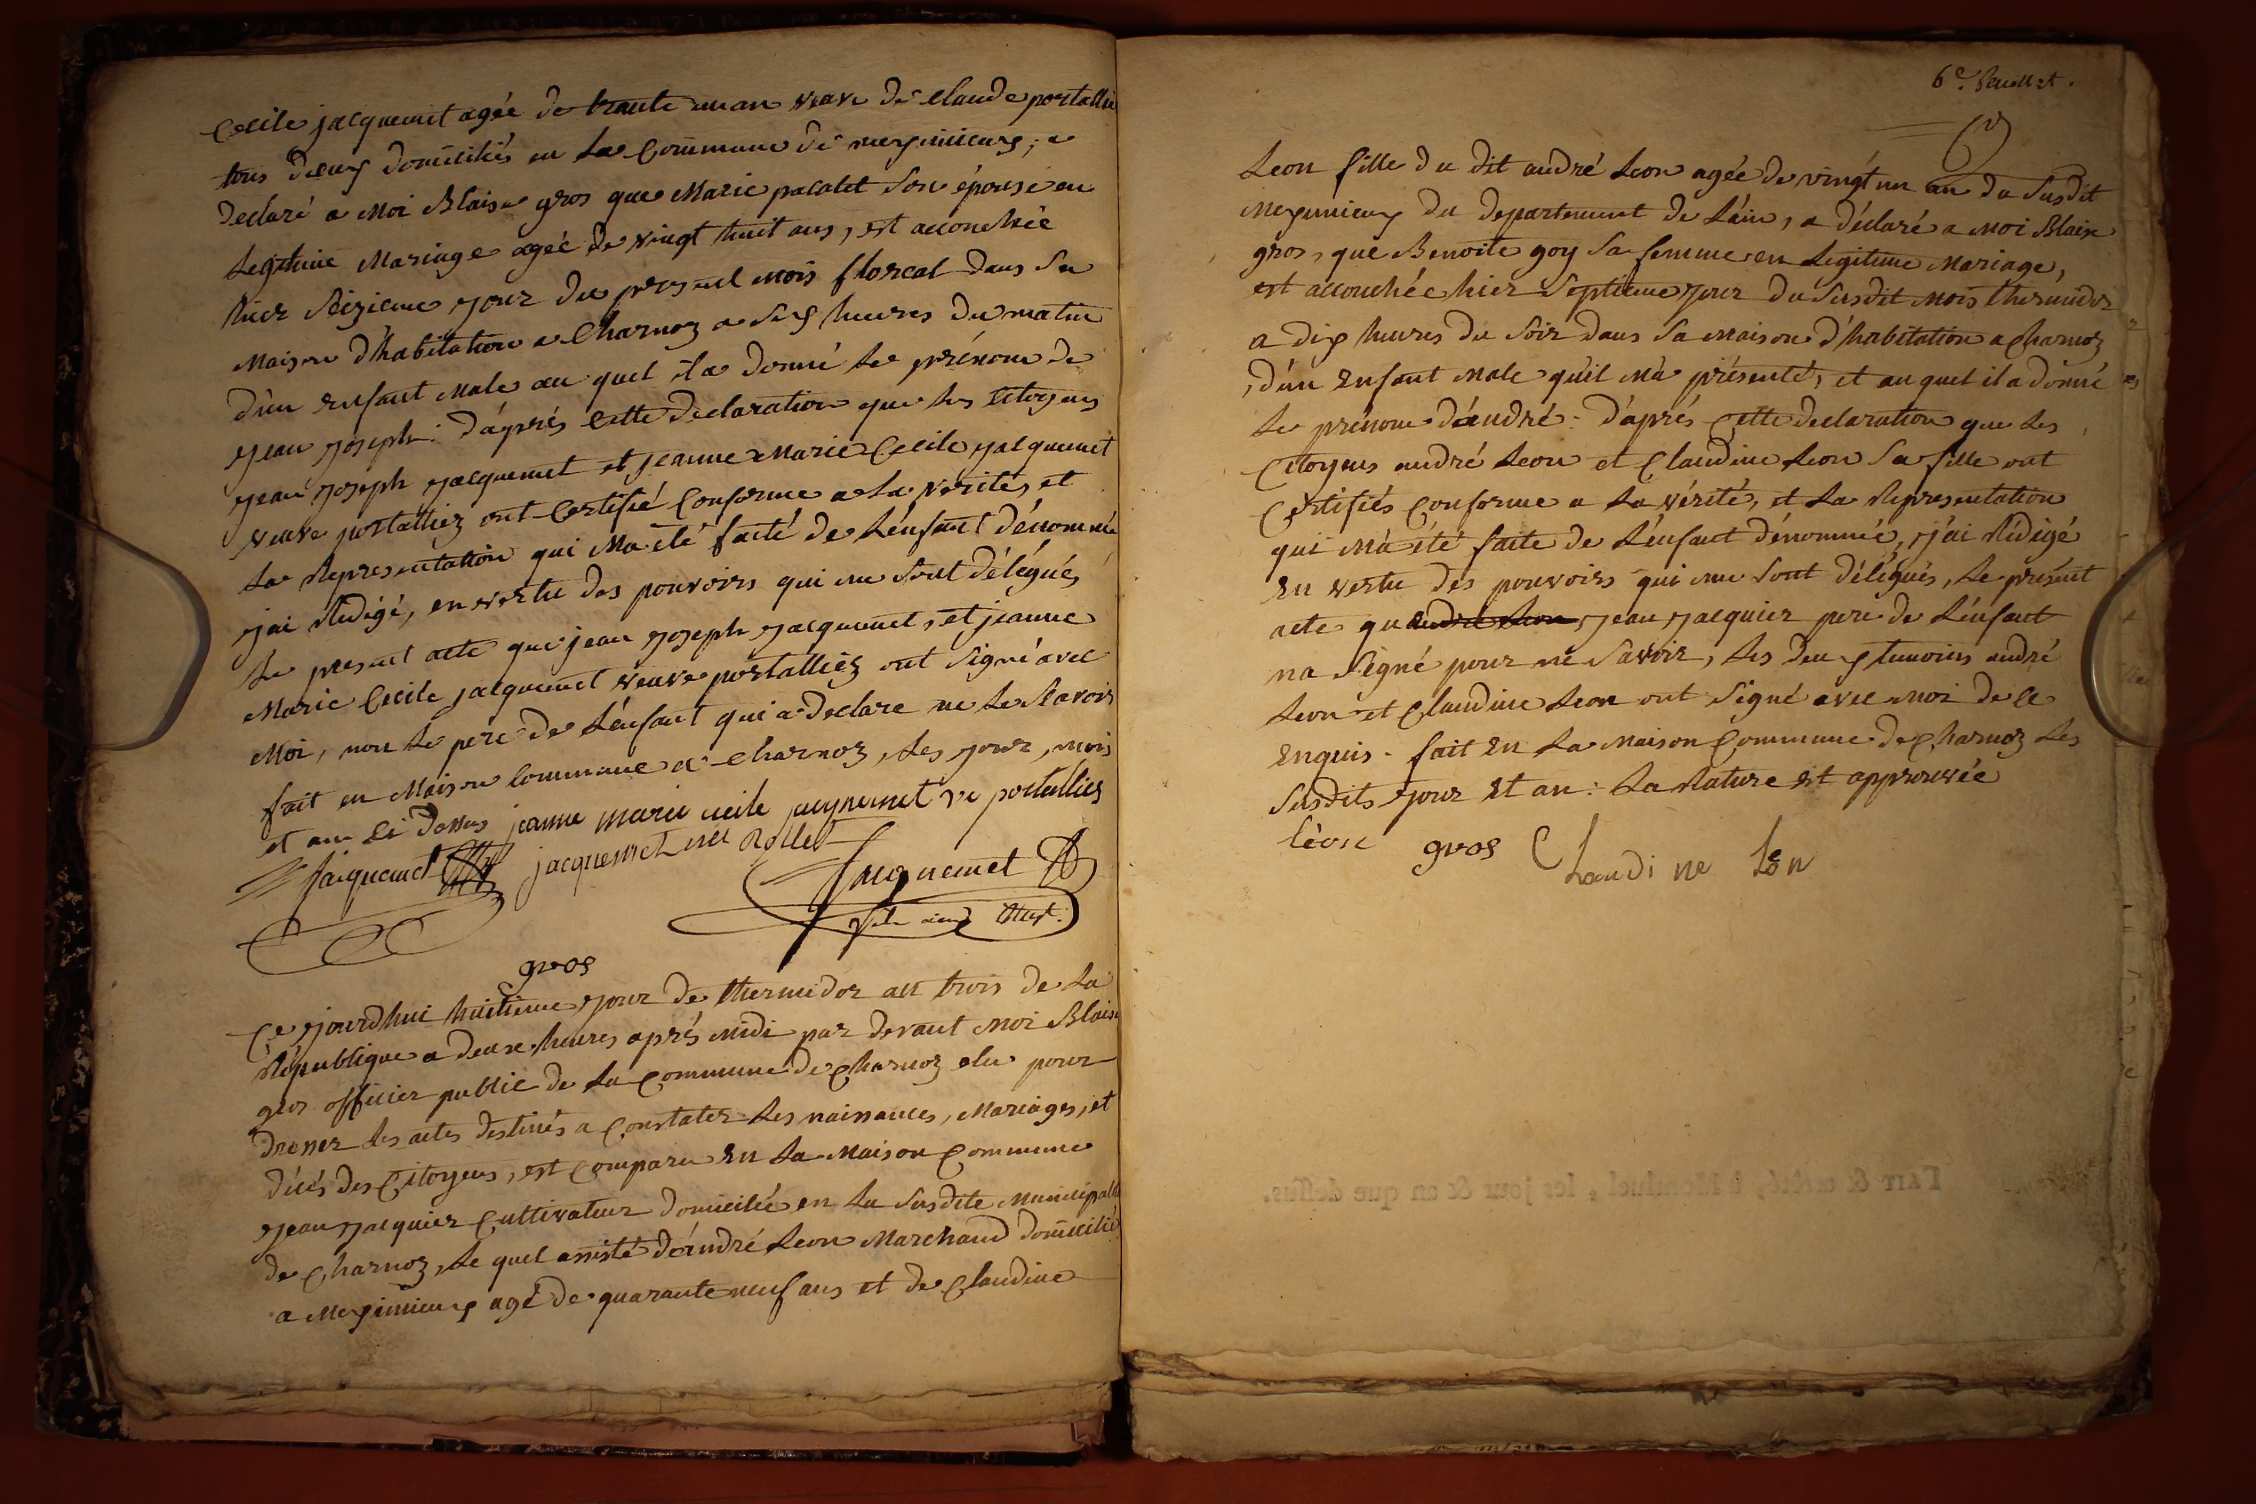 Cecile jacquemet agée de trante un an veuve de Claude portallier
tous deux domiciliés en La Commune de meximieux; a
declaré a Moi Blaise gros que Marie pacalet son épouse en
Legitime Mariage agée de vingt huit ans, est accouchée
hier seizieme jour du present mois floreal dans sa
Maison d'habitation a Charnoz a six heures du matin
d'un enfant Male au quel il a donné le prénom de
jean joseph: d'áprés cette declaration que les citoyens
jean joseph jacquemet et jeanne Marie Cecile jacquemet
veuve portalliez ont certifié Conforme a La vérité, et
La Representation qui Ma été faite de L'énfant dénommé
jai Rédigé, en vertu des pouvoirs qui me sont délégués
Le present acte que jean joseph jacquemet, et jeanne
Marie Cecile jacquemet veuve portalliéz ont signé avec
Moi, non Le pere de L'énfant qui a declare ne Le Savoir
fait en Maison Commune a Charnoz, Les jour, mois
et an ci dessus jeanne marie cecile jacquemet ve portallier
jacquemet jacquemet Rollet
Jacquemet
gros
Ce jourdhui huitieme jour de thermidor an trois de La
République a deux heures aprés midi par devant moi Blaise
gros officier public de La Commune de Charnoz elu pour
dresser Les actes destinés a Constater Les naissances, Mariages, et
décés des Citoyens, est Comparu En La Maison Commune
jean jacquier Cultivateur domicilié en La susdite Municipalité
de Charnoz, Le quel assisté d'ándré Leon Marchand domicilié
a Meximieux agé de quarante neuf ans et de Claudine
6e. feuillet.
Leon fille du dit andré Leon agée de vingt un an du susdit
Meximieux du departement de L'áin, a déclaré a moi Blaise
gros, que Benoite goy sa femme en Legitime Mariage,
est accouchée hier septieme jour du susdit mois thermidor
a dix heures du soir dans sa maison d'habitation a Charnoz
, d'ún Enfant male qu'il M'a présenté, et au quel il a donné
Le prénom d'ándré: d'aprés Cette declaration que Les
Citoyens andré Leon et Claudine Leon sa fille ont
Certifiés Conforme a La vérité, et La Representation
qui M'a été faite de L'énfant dénommé, j'ai Rédigé
En vertu des pouvoirs qui me sont délégués, Le présent
acte qu andré Leon, jean jacquier pere de L'énfant
na signé pour ne Savoir, Les deux temoins andré
Leon et Claudine Leon ont signé avec moi de ce
Enquis. fait En La Maison Commune de Charnoz Les
susdits jour Et an: La Rature est approuvée
léon gros Claudine Léon
FAIT & arrêté, à Montluel, les jour & an que dessus.